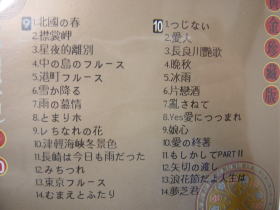 9
1.北國の春
2.襟裳岬
3.星夜的離別
4.中の島のフルース
5.港町フルース
6.雪か降る
7.雨の慕情
8.とまりホ
9.レちなれの花
10.津輕海峡冬景色
11.長崎は今日も雨だった
12.みちつれ
13.東京フルース
14.むまえとふたり
10
1.つじない
2.愛人
3.長良川艶歌
4.晩秋
5.冰雨
6.片戀酒
7.亂されて
8.Yes愛につつまれ
9.娘心
10.愛の終著
11.もしかしてPARTⅡ
12.矢切の渡し
13.浪花節だよ人生は
14.夢芝君